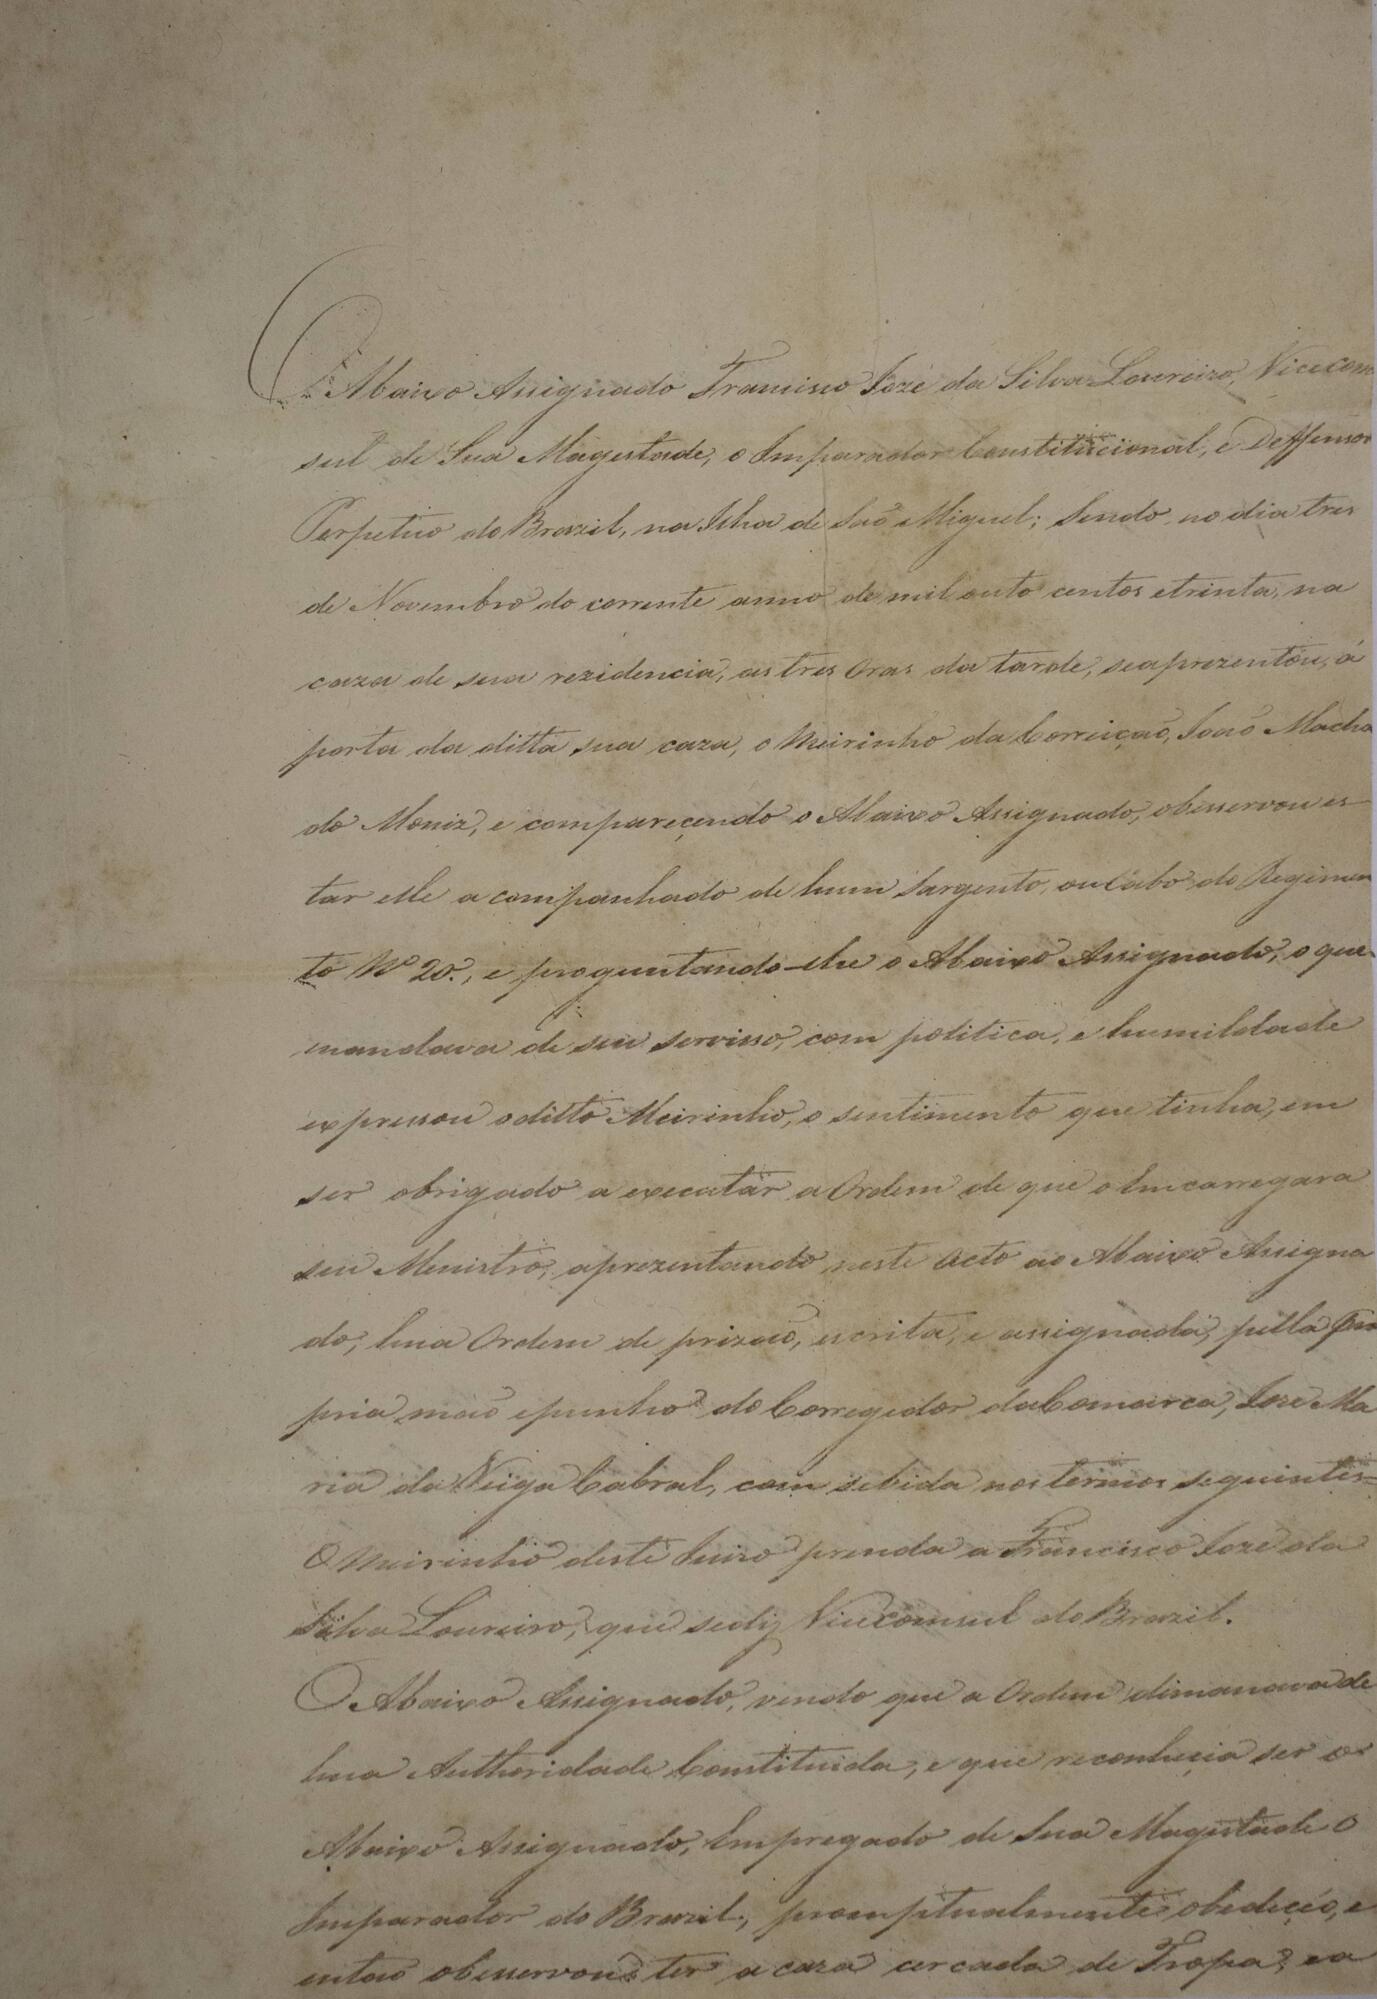 O Abaixo Assignado Francisco Jozé da Silva Loureiro, Vicecom
sul de Sua Magestade, o Imparador Constitucional, e Deffensor
Perpetuo do Brazil, na Ilha de Saõ Miguel; Sendo, no dia tres
de Novembro do corrente anno de mil outo centos e trinta, na
caza de sua rezidencia, as tres Oras da tarde, se aprezentou, á
porta da ditta sua caza, o Meirinho da Correiçaõ, Joaõ Macha
do Moniz, e compareçendo o Abaixo Assignado, obesservou es-
tar elle a companhado de hum Sargento, ou Cabo do Regimen
to Nº 20., e proguntando-lhe o Abaixo Assignado, o que
mandava de seu servisso, com politica, e humildade
expressou o ditto Meirinho, o sentimento que tinha, em
ser obrigado a executar a Ordem de que o Emcarregara
seu Menistro, aprezentando neste Acto ao Abaixo Assigna
do, hua Ordem de prizaõ, escrita, e assignada, pella Pro
pria maõ e punho do Corregedor da Comarca, Joze Ma
ria da Veiga Cabral, comsebida nos termos seguintes=
O Meirinho deste Juizo prenda a Francisco Joze da
Silva Loureiro, que se diz Vicecomsul do Brazil.
O Abaixo Assignado, vendo que a Ordem dimanava de
hua Authoridade Constituida, e que reconhecia ser o
Abaixo Assignado, Empregado de Sua Magestade o
Imparador do Brazil, promptualmente obedeçeo, e
entaõ obesservou ter a caza cercada de Tropa, e a